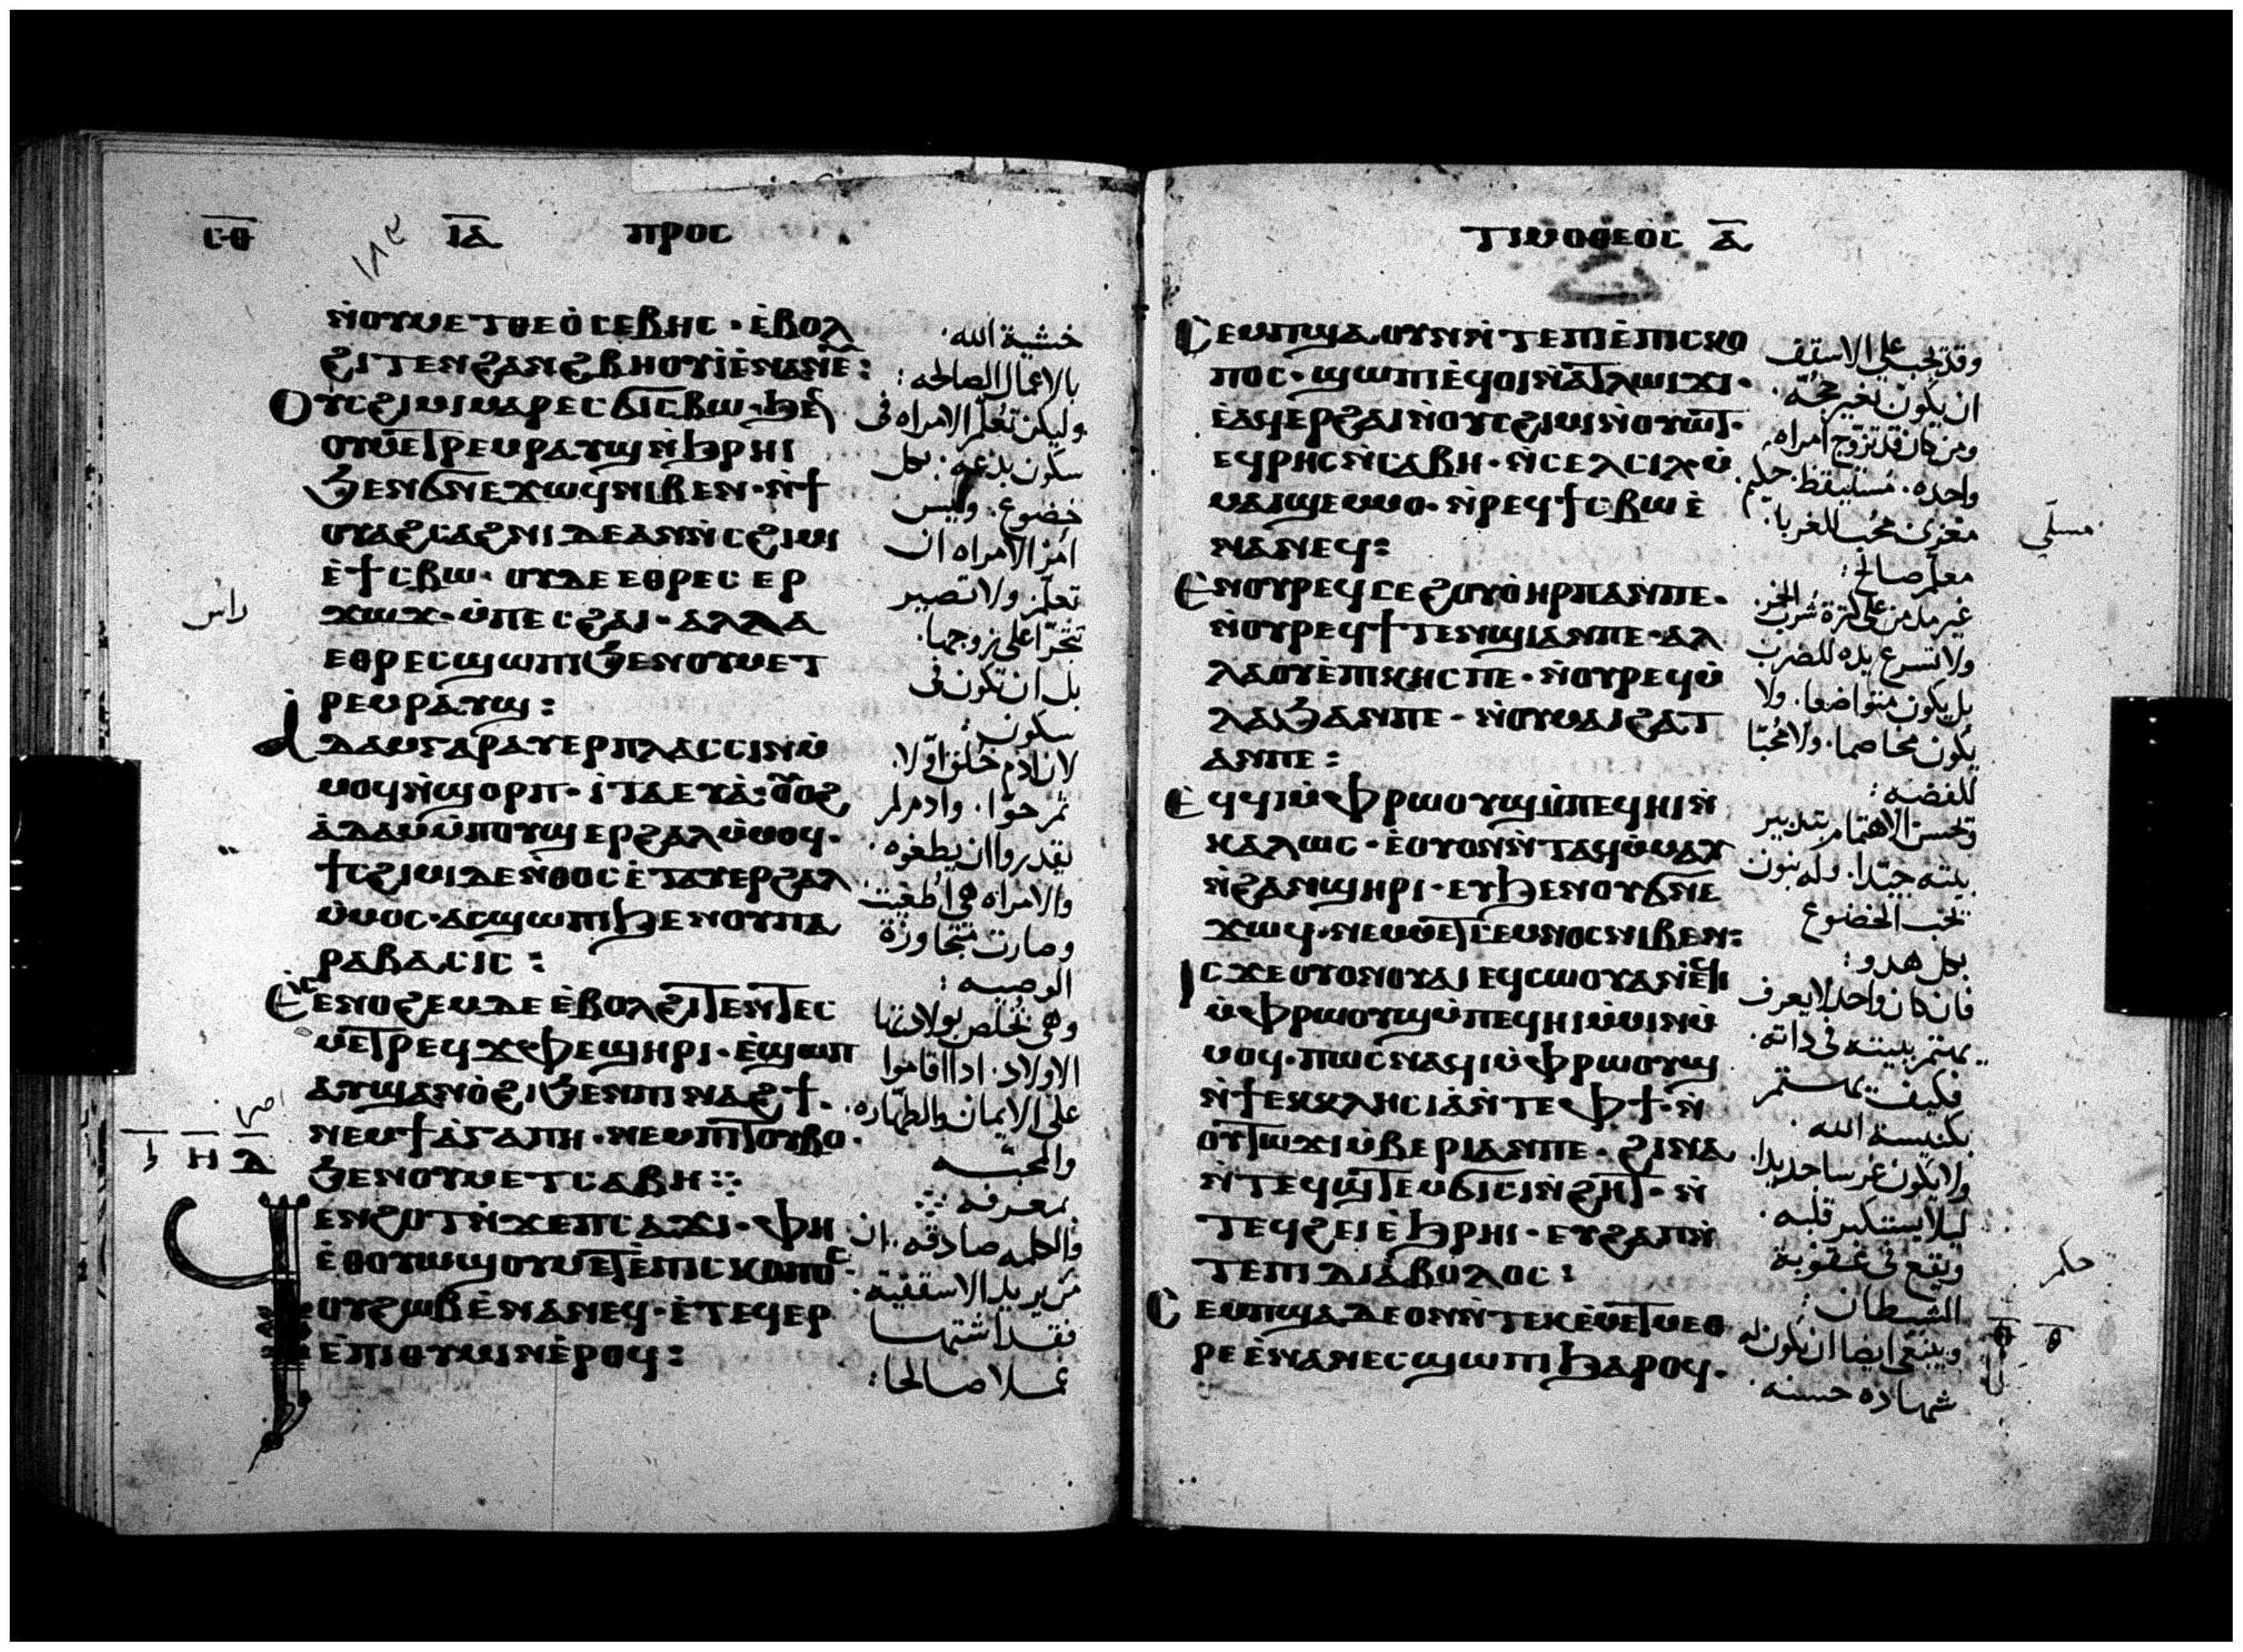 ⲥⲑ ⲓⲁ ⲡⲣⲟⲥ
ⲛ̀ⲟⲩⲙⲉⲧⲑⲉⲟ̀ⲥⲉⲃⲏⲥ · ⲉ̀ⲃⲟⲗ
ϩⲓⲧⲉⲛϩⲁⲛϩⲃⲏⲟⲩⲓ̀ⲉ̀ⲛⲁⲛⲉⲩ :
ⲟⲩⲥϩⲓⲙⲓⲙⲁⲣⲉⲥϭⲓⲥⲃⲱ · ϧⲉⲛ
ⲟⲩⲙⲉⲧⲣⲉⲙⲣⲁⲩϣⲛ̀ϧⲣⲏⲓ
ϧⲉⲛϭⲛⲉϫⲱϥⲛⲓⲃⲉⲛ · ⲛ̀ϯ
ⲟⲩⲁϩⲥⲁϩⲛⲓⲇⲉⲁⲛⲛ̀ⲥϩⲓⲙⲓ
ⲉ̀ϯⲥⲃⲱ · ⲟⲩⲇⲉⲉⲑⲣⲉⲥⲉⲣ
ϫⲱϫ · ⲙ̀ⲡⲉⲥϩⲁⲓ · ⲁⲗⲗⲁ
ⲉⲑⲣⲉⲥϣⲱⲡⲓϧⲉⲛⲟⲩⲙⲉⲧ
ⲣⲉⲙⲣⲁⲩϣ :
ⲁ̀ⲇⲁⲙⲅⲁⲣⲁⲩⲉⲣⲡⲗⲁⲥⲥⲓⲛⲙ̀
ⲙⲟϥⲛ̀ϣⲟⲣⲡ · ⲓ̀ⲧⲁⲉⲩⲁ̀ : ⲟⲩⲟϩ
ⲁ̀ⲇⲁⲙⲙ̀ⲡⲟⲩϣⲉⲣϩⲁⲗⲙ̀ⲙⲟϥ ·
ϯⲥϩⲓⲙⲓⲇⲉⲛ̀ⲑⲟⲥⲉ̀ⲧⲁⲩⲉⲣϩⲁⲗ
ⲙ̀ⲙⲟⲥ · ⲁⲥϣⲱⲡⲓϧⲉⲛⲟⲩⲡⲁ
ⲣⲁⲃⲁⲥⲓⲥ :
ⲉⲥⲉ̀ⲛⲟϩⲉⲙⲇⲉⲉ̀ⲃⲟⲗϩⲓⲧⲉⲛⲧⲉⲥ
ⲙⲉⲧⲣⲉϥϫⲫⲉϣⲏⲣⲓ · ⲉ̀ϣⲱⲡ
ⲁⲩϣⲁⲛⲟ̀ϩⲓϧⲉⲛⲡⲓⲛⲁϩϯ ·
ⲛⲉⲙϯⲁ̀ⲅⲁⲡⲏ · ⲛⲉⲙⲡⲓⲧⲟⲩⲃⲟ ·
ϧⲉⲛⲟⲩⲙⲉⲧⲥⲁⲃⲏ ⁘
ϥⲉⲛϩⲟⲧⲛ̀ϫⲉⲡⲥⲁϫⲓ · ⲫⲏ
ⲉ̀ⲑⲟⲩⲱϣⲟⲩⲙⲉⲧⲉ̀ⲡⲓⲥⲕⲟⲡⲟⲥ ·
ⲟⲩϩⲱⲃⲉ̀ⲛⲁⲛⲉϥ · ⲉ̀ⲧⲉϥⲉⲣ
ⲉ̀ⲡⲓⲑⲩⲙⲓⲛⲉ̀ⲣⲟϥ :
خشية الله ·
بالاعمال الصالحه :
وليكن تعلم الامراه فى
سكون بدعه · بكل
خضوع · وليس
امر الامراه ان
تعلم · ولا تصير
تجترا على زوجها ·
بل ان تكون فى
سكون :
لان ادم خلق اولا ·
ثم حوا · وادم لم
يقدروا ان يطغوه ·
والامراه هى اطغيت ·
وصارت متجاوزة
الوصيه :
وهى تخلص بولادتها
الاولاد · اذا اقاموا
على الايمان والطهاره ·
والمحبه
بمعرفه ⁘
والكلمه صادقه · ان
من يريد الاسقفيه ·
فقد اشتهى
عملا صالحا :
راس
ⲧⲓⲙⲟⲑⲉⲟⲥ ⲁ
ⲥⲉⲙⲡϣⲁⲟⲩⲛⲛ̀ⲧⲉⲡⲓⲉ̀ⲡⲓⲥⲕⲟ
ⲡⲟⲥ · ϣⲱⲡⲓⲉ̀ϥⲟⲓⲛ̀ⲁⲧⲗⲱⲓϫⲓ ·
ⲉ̀ⲁϥⲉⲣϩⲁⲓⲛ̀ⲟⲩⲥϩⲓⲙⲓⲛ̀ⲟⲩⲱⲧ ·
ⲉϥⲣⲏⲥⲛ̀ⲥⲁⲃⲏ · ⲛ̀ⲥⲉⲗⲥⲓⲗⲙ̀
ⲙⲁⲓϣⲉⲙⲙⲟ · ⲛ̀ⲣⲉϥϯⲥⲃⲱⲉ̀
ⲛⲁⲛⲉϥ :
ⲉ̀ⲛⲟⲩⲣⲉϥⲥⲉϩⲟⲩⲟ̀ⲏⲣⲡⲁⲛⲡⲉ ·
ⲛ̀ⲟⲩⲣⲉϥϯⲧⲉⲛϣⲓⲁⲛⲡⲉ · ⲁⲗ
ⲗⲁⲟⲩⲉ̀ⲡⲓⲕⲏⲥⲡⲉ · ⲛ̀ⲟⲩⲣⲉϥⲙ̀
ⲗⲁϧⲁⲛⲡⲉ · ⲛ̀ⲟⲩⲙⲁⲓϩⲁⲧ
ⲁⲛⲡⲉ :
ⲉ̀ϥϥⲓⲙ̀ⲫⲣⲱⲟⲩϣⲙ̀ⲡⲉϥⲏⲓⲛ̀
ⲕⲁⲗⲱⲥ · ⲉ̀ⲟⲩⲟⲛⲛ̀ⲧⲁϥⲙ̀ⲙⲁⲩ
ⲛ̀ϩⲁⲛϣⲏⲣⲓ · ⲉⲩϧⲉⲛⲟⲩϭⲛⲉ
ϫⲱϥ · ⲛⲉⲙⲙⲉⲧⲥⲉⲙⲛⲟⲥⲛⲓⲃⲉⲛ :
ⲓⲥϫⲉⲟⲩⲟⲛⲟⲩⲁⲓⲉϥⲥⲱⲟⲩⲁⲛⲉ̀ϥⲓ
ⲙ̀ⲫⲣⲱⲟⲩϣⲙ̀ⲡⲉϥⲏⲓⲙ̀ⲙⲓⲛⲙ̀
ⲙⲟϥ · ⲡⲱⲥⲛⲁϥⲓⲙ̀ⲫⲣⲱⲟⲩϣ
ⲛ̀ϯⲉⲕⲕⲗⲏⲥⲓⲁ̀ⲛ̀ⲧⲉⲫϯ · ⲛ̀
ⲟⲩⲧⲱϫⲓⲙ̀ⲃⲉⲣⲓⲁⲛⲡⲉ · ϩⲓⲛⲁ
ⲛ̀ⲧⲉϥϣⲧⲉⲙϭⲓⲥⲓⲛ̀ϩⲏⲧ · ⲛ̀
ⲧⲉϥϩⲉⲓⲉ̀ϧⲣⲏⲓ · ⲉⲩϩⲁⲡⲛ̀
ⲧⲉⲡⲓⲇⲓⲁ̀ⲃⲟⲗⲟⲥ :
ⲥⲉⲙⲡϣⲁⲇⲉⲟⲛⲛ̀ⲧⲉⲕⲉⲙⲉⲧⲙⲉⲑ
ⲣⲉⲉ̀ⲛⲁⲛⲉⲥϣⲱⲡⲓϧⲁⲣⲟϥ ·
وقد يجب على الاسقف
ان يكون بغير حجه ·
ومن كان قد تزوج امراه
واحده · مستيقظ · حكيم ·
معزى · محب للغربا ·
معلم صالح :
غير مدمن على كثرة شرب الخمر ·
ولا تسرع يده للضرب
بل يكون متواضعا · ولا
يكون مخاصما · ولا محبا
للفضه :
ويحسن الاهتمام بتدبير
بيته جيدا · وله بنون
تحت الخضوع
بكل هدو :
فان كان واحد لا يعرف
يهتم ببيته فى ذاته ·
فكيف يهتم
بكنيسة الله ·
ولا يكون غرسا جديدا ·
ليلا يستكبر قلبه ·
ويقع فى عقوبة
الشيطان :
وينبغى ايضا ان يكون له
شهاده حسنه ·
مسلى
حكم